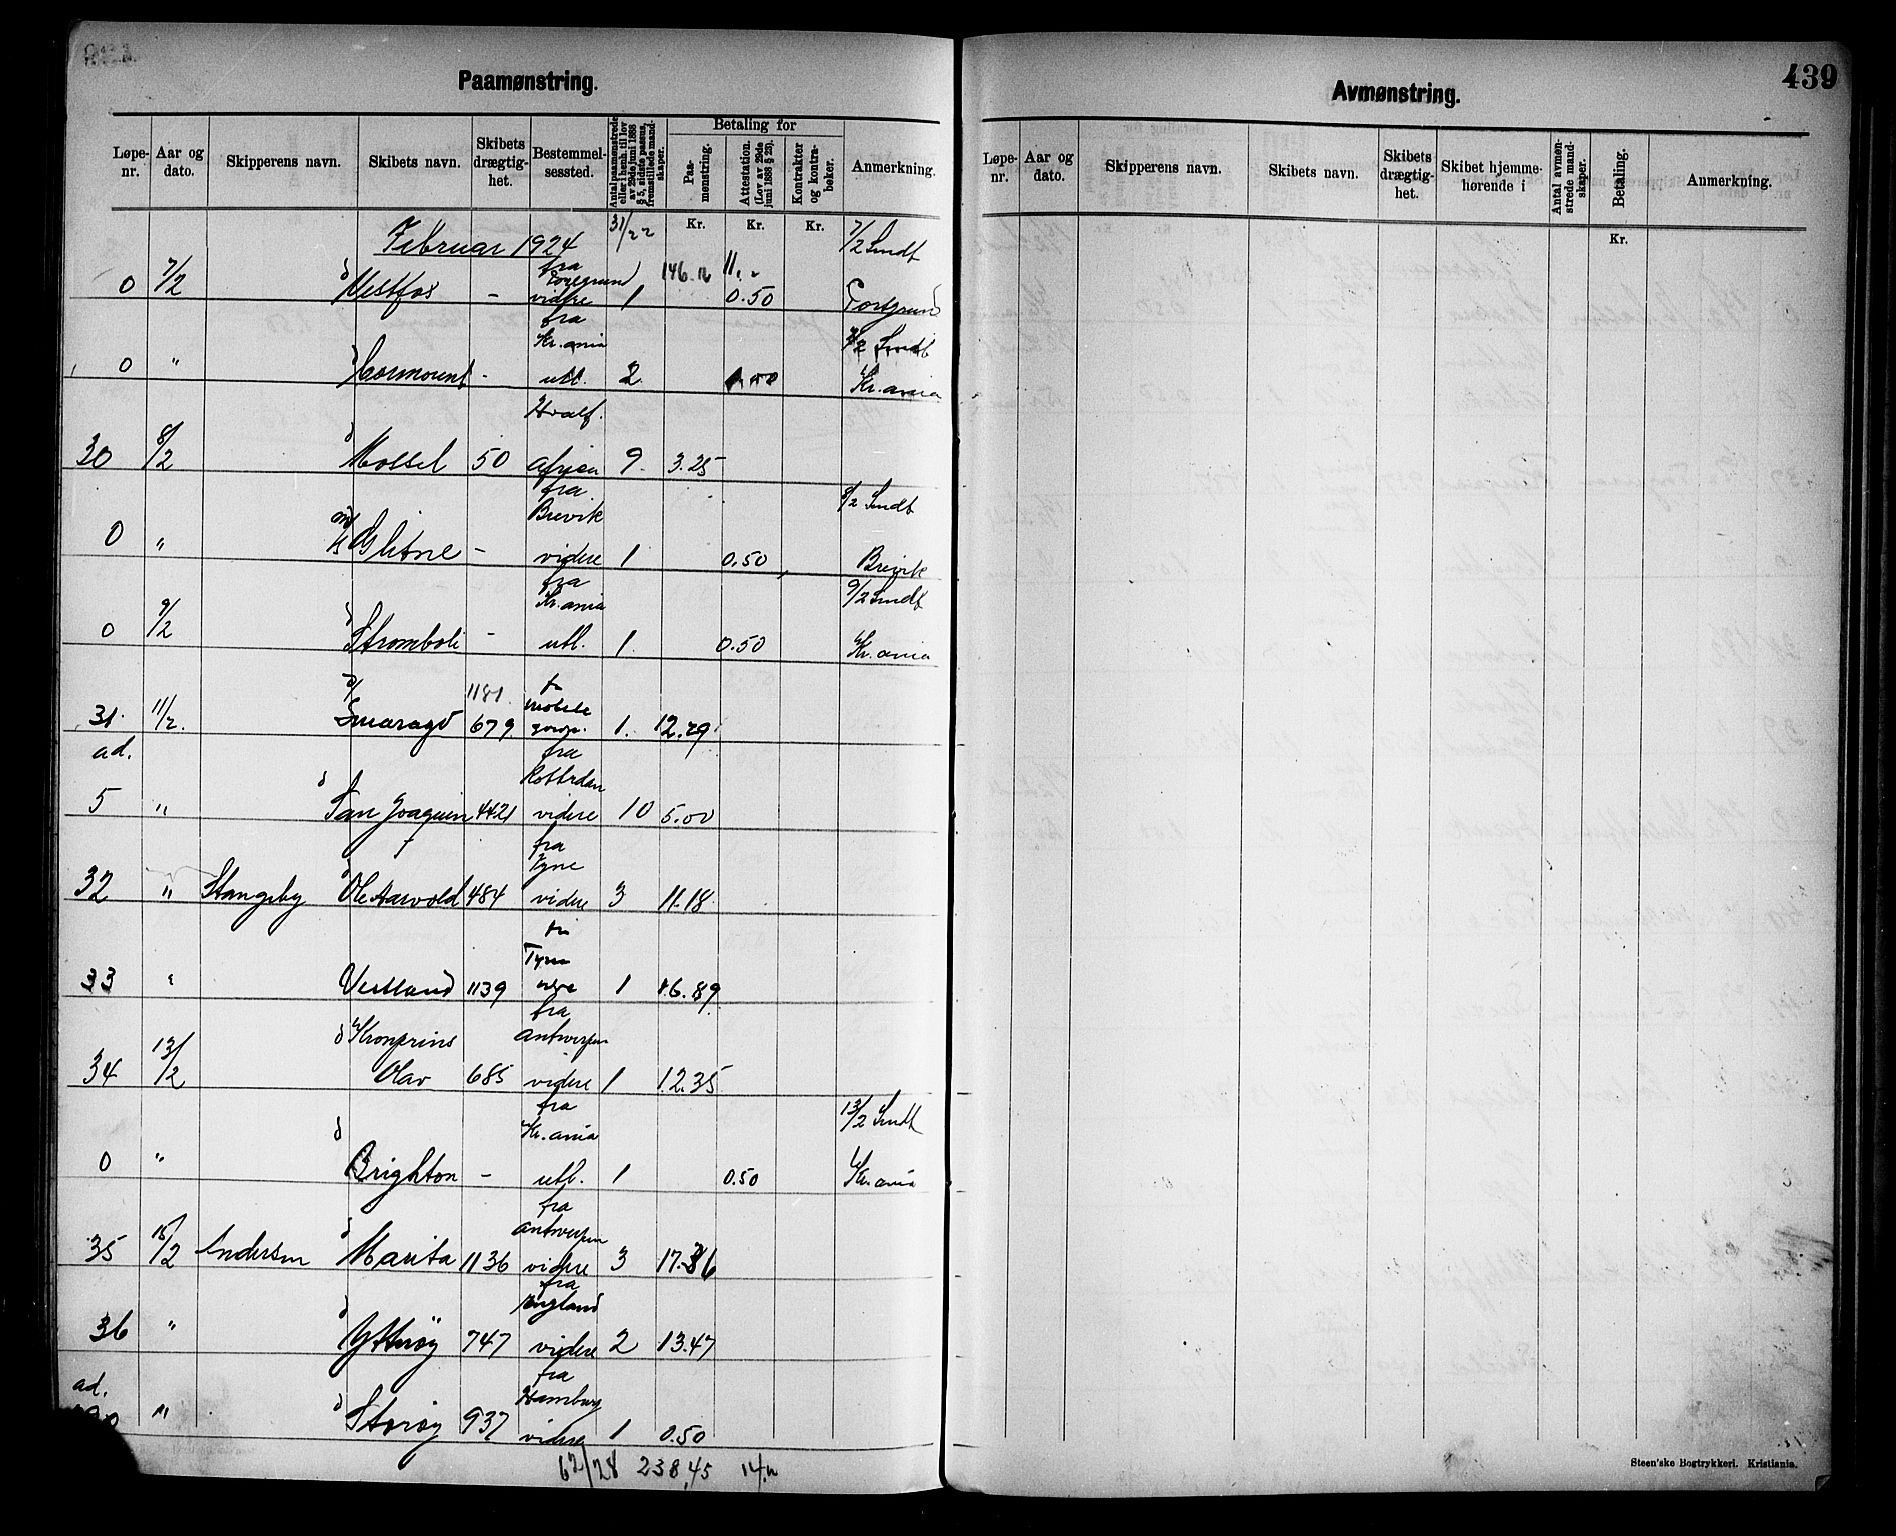 Paamønstring.
Løpe-nr. Aar og dato. Skipperens navn. Skibets navn. Skibets drægtig-het. Bestemmel-sessted. Antal paamønstrede eller i henh. til lov av 29de juni 1888 § 5, sidste passus, fremstillede mand-skaper. Betaling for Paa-mønstring. Attestation. (Lov av 29de juni 1888 § 25). Kontrakter og kontra-bøker. Anmerkning.
Kr. Kr. Kr.
Februar 1924 31/22 7/2 Smdt
fra
0 7/2 d Vestfos - videre 1 146. 11.- 0.50 Porsgrund
fra Kr.ania 7/2 Smdt
0 " d utl. 2 Kr.ania
Hvalf.
30 8/2 d Mossel 50 Africa 9. 3.25
fra Brevik 8/2 Smdt
0 " Glitne - videre 1 0.50 Brevik
fra Kr.ania 9/2 Smdt
0 9/2 d Stromboli - utl. 1. 0.50 Kr.ania
1181 fr mobile
31. 11/2. d/ Smaragd 679 1. 12.29
ad. fra Rotterdam
5 " d San Joaquin 4421 videre 10 5.00
fra Tyne
32 " Stangeby d Ole Aarvold 484 videre 3 11.18
fra Tyne
33 " Vestland 1139 1 16.89
fra Antwerpen
34 13/2 d Kronprins Olav 685 videre 1 12.35
fra Kr.ania 13/2 Smdt
0 " d Brighton - utl. 1 0.50 Kr.ania
fra Antwerpen
35 15/2 Andersen d Marita 1136 videre 3 17.36
fra England
36 " d Ytterøy 747 videre 2 13.47
ad. fra Hamburg
" d Storøy 937 videre 1 0.50
62/28 238,45 14.
Avmønstring.
439
Løpe-nr. Aar og dato. Skipperens navn. Skibets navn. Skibets drægtig-het. Skibet hjemme-hørende i Antal avmøn-strede mand-skaper. Betaling. Anmerkning.
Kr.
Steen'ske Bogtrykkeri. Kristiania.